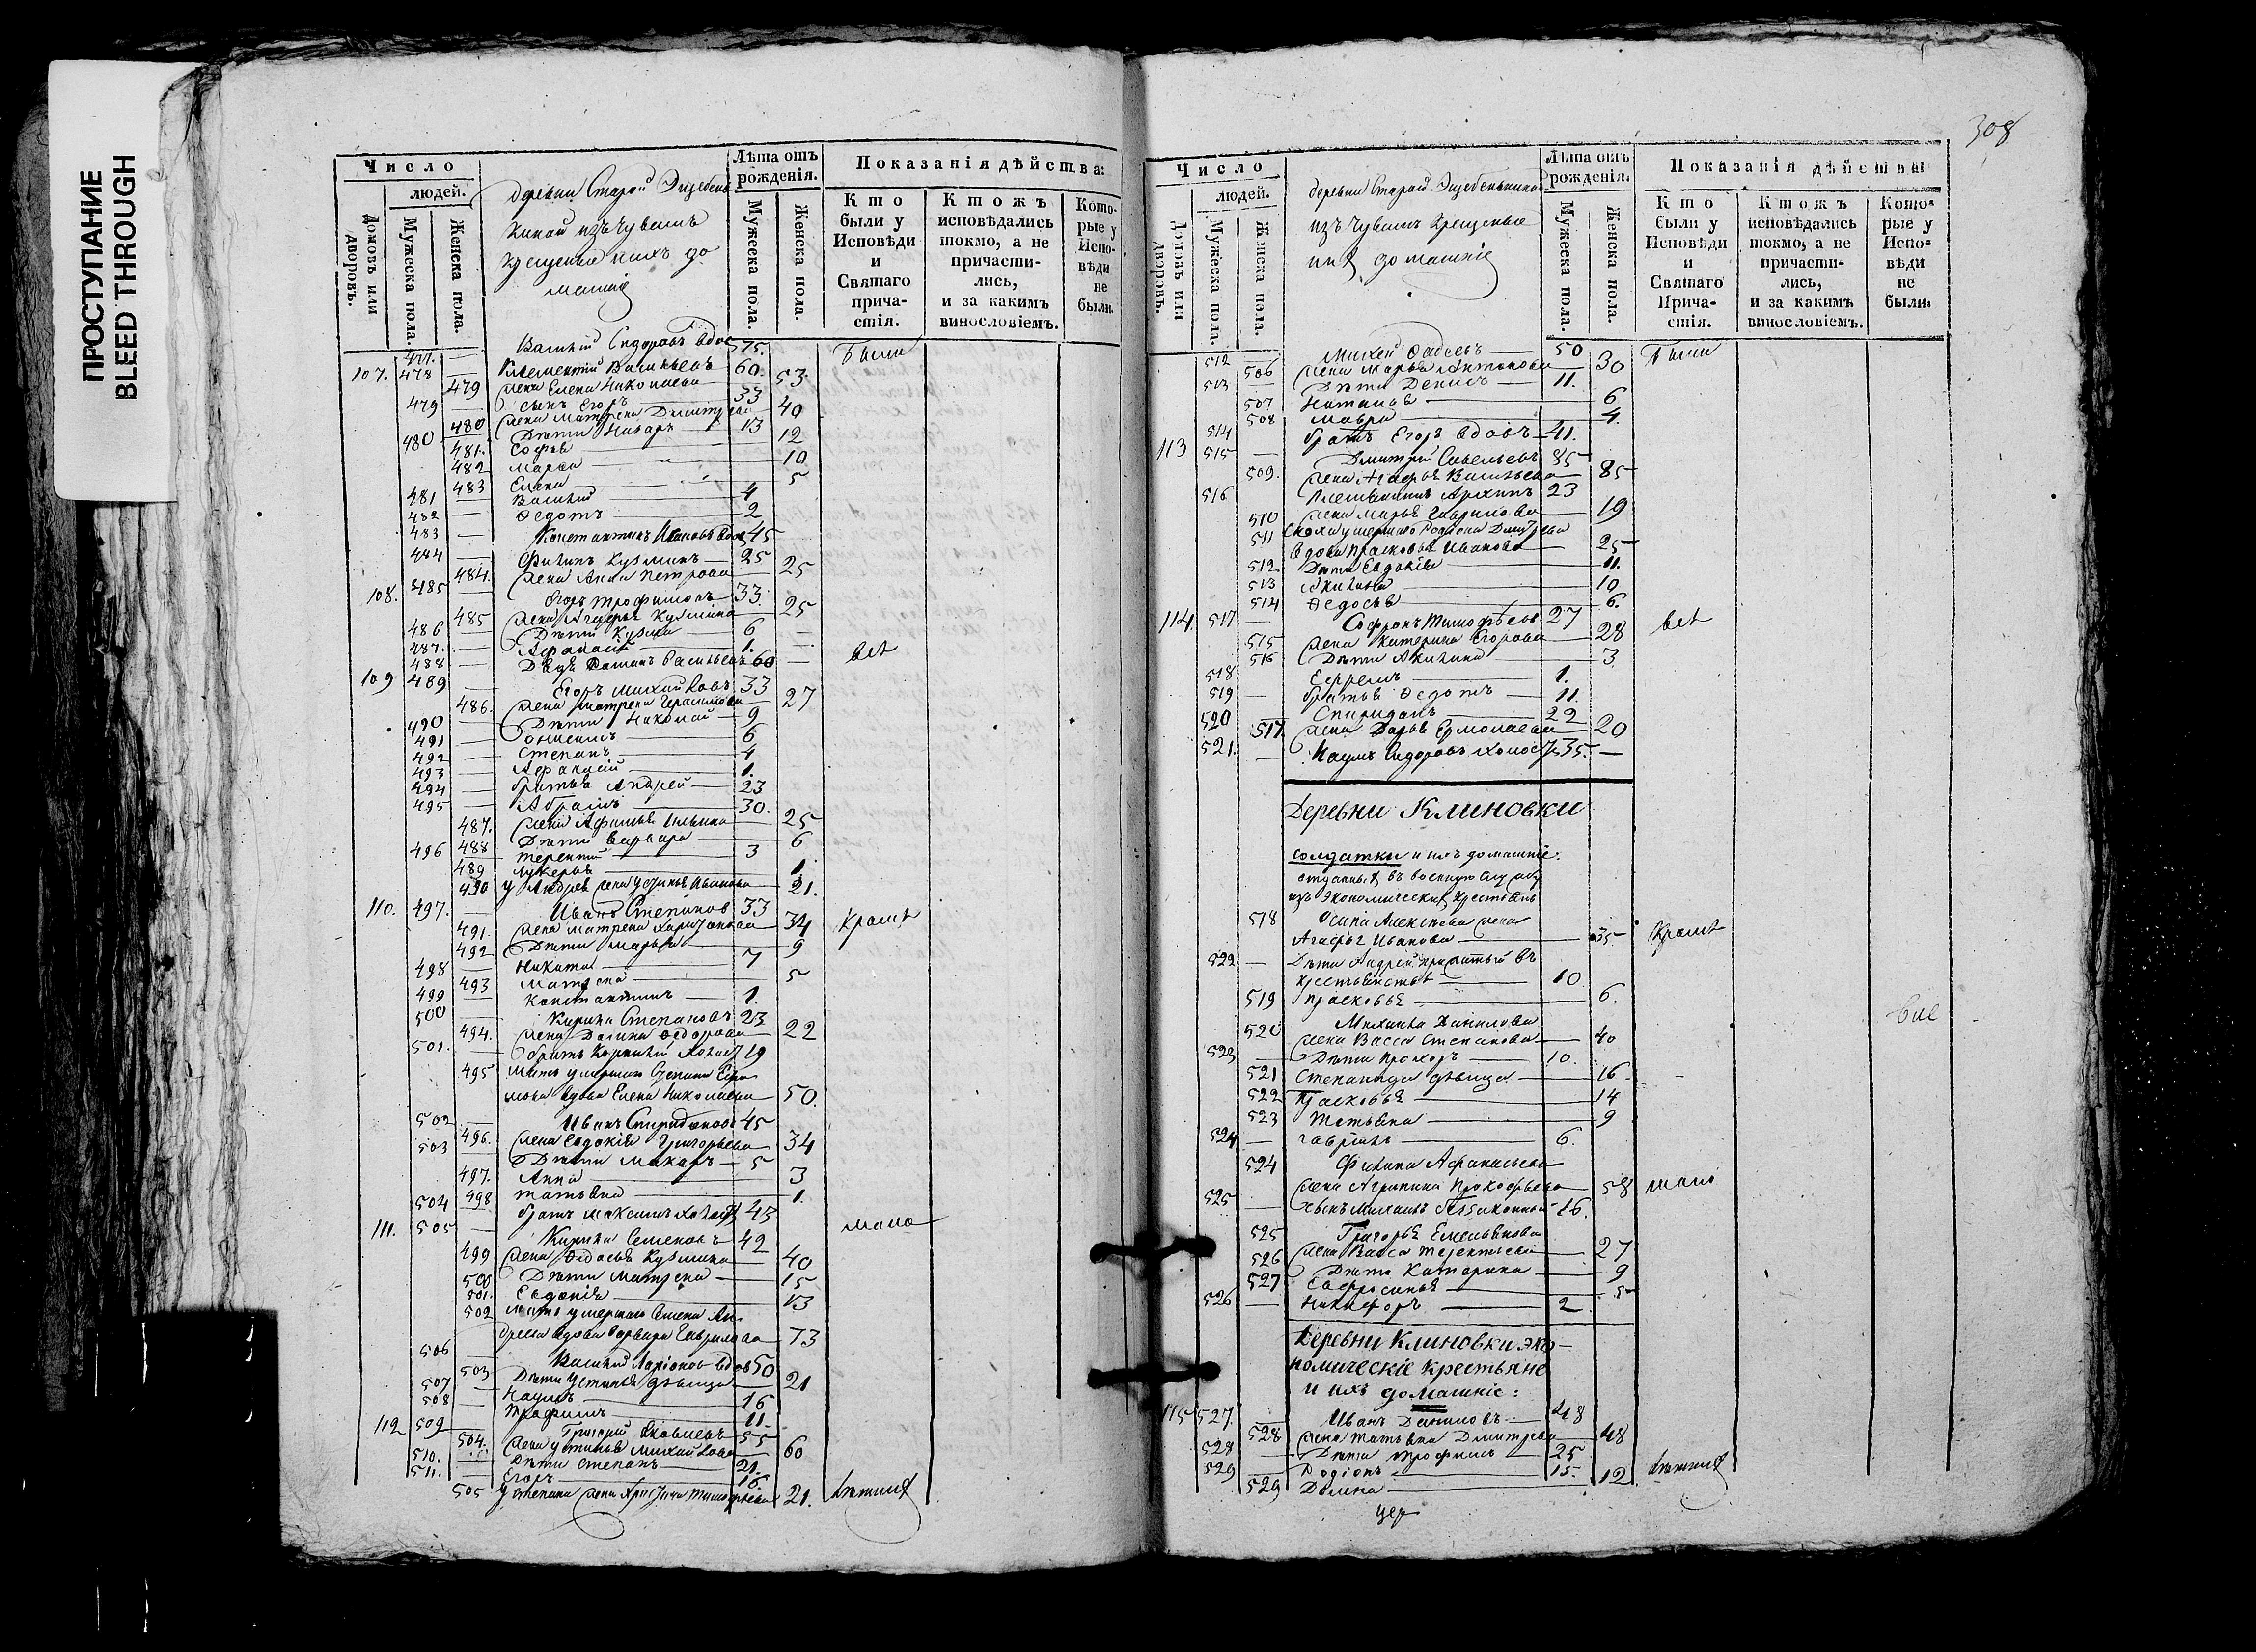 ПРОСТУПАНИЕ
BLEED THROUGH
Число
людей.
Домовъ или дворовъ.
Мужеска пола.
Женска пола.
деревни Старой
изъ Чувашъ
крещеные ихъ до
машніе
Лѣта отъ рожденія.
Мужеска пола.
Женска пола.
Показанія дѣйства:
Кто были у Исповѣди и Святаго причастія.
Ктожъ исповѣдались токмо, а не причастились, и за какимъ винословіемъ.
Которые у Исповѣди не были.
477. — Василій Сидоровъ вдовъ 75. Были
107. 478 — Климентій Васильевъ 60.
479 жена Елена Николаева 53
479 — сынъ Егоръ 33
480 жена Матрена Дмитріева 40
480 Дѣти Назаръ 13
481. Софья 12
482 Марья 10
483 Елена 5
481 — Василий 4
482 — Федотъ 2
483 — Константинъ Ивановъ вдов 45
484 — Филипъ Кузминъ 25
484. жена Анна Петрова 25
108. 485 — Егоръ Трофимовъ 33
485 жена Агафья Кузмина 25
486 — Дѣти Кузма 6
487. — Афанасій 1.
488 — Дѣдъ Романъ Васильевъ 60 — всѣ
109 489 — Егоръ Михайловъ 33
486. жена Матрена Герасимова 27
490 — Дѣти Николай 9
491 — Онисимъ 6
492 — Степанъ 4
493 — Афанасій 1.
494 — братья Андрей 23
495 — Абрамъ 30.
487. жена Афимья Ильина 25
488 Дѣти Варвара 6
496 — Терентий 3
489 Лукерья 1
490 у Андрея жена Устинья Иванова 21.
110. 497. — Иванъ Степановъ 33
491. жена Матрена Харитонова 34
492 Дѣти Марья 9
498 — Никита 7
493 Матрена 5
499 — Константинъ 1.
500 — Кирила Степановъ 23
494. жена Домна Федорова 22
501. — братъ Корнилий холост 19
495 Мать умершаго Степана Ефи
мова вдова Елена Николаева 50.
502 — Иванъ Спиридоновъ 45
496. жена Евдокія Григорьева 34
503 — Дѣти Макаръ 5
497. Анна 3
498 Татьяна 1.
504 братъ Максимъ холост 43
111. 505 — Кирила Семеновъ 42
499 жена Федосья Кузмина 40
500 Дѣти Матрена 15
501. Евдокія 13
502 Мать умершаго Семена Ан-
дреева вдова Варвара Гаврилова 73
506 — Василий Ларіоновъ вдов 50
503 Дѣти Устинья дѣвица 21
507 — Наумъ 16
508 — Трофимъ 11.
112 509 Григорій Яковлевъ 55
504. жена Устинья Михайлова 60
510. Дѣти Степанъ 21.
511. — Егоръ 16
505 у Степана жена Христина Тимофѣева 21.
308
Число
людей.
Домовъ или дворовъ.
Мужеска пола.
Женска пола.
деревни Старой
изъ Чувашъ крещеные
ихъ домашніе
Лѣта отъ рожденія.
Мужеска пола.
Женска пола.
Показанія дѣйства
Кто были у Исповѣди и Святаго Причастія.
Ктожъ исповѣдались токмо, а не причастились, и за какимъ винословіемъ.
Которые у Исповѣди не были.
512 — Михей Фадеевъ 50 Были
506 жена Марья Антонова 30
513 — Дѣти Денисъ 11.
507 Наталья 6
508 Мавра 4.
514 братъ Егоръ вдовъ 41.
113 515 — Дмитрій Савельевъ 85
509. жена Агафья Васильева 85
516 Племянникъ Архипъ 23
510 жена Марья Гаврилова 19
511 Сноха умершаго Родиона Дмитрева
вдова Прасковья Иванова 25
512 Дѣти Евдокія 11.
513 Акилина 10
514 Федосья 6.
114. 517 — Софронъ Тимофѣевъ 27 всѣ
515 жена Катерина Егорова 28
516 Дѣти Акилина 3
518 Ефремъ 1.
519 — братья Федотъ 11.
520 — Спиридонъ 22
517 жена Дарья Ермолаева 20
521. — Наумъ Сидоровъ холост 35. —
Деревни Клиновки
солдатки и ихъ домашніе.
отданныхъ въ военную службу
изъ Экономическихъ крестьянъ
518 Осипа Алексѣева жена
Агафья Иванова 35.
522. — Дѣти Андрей
10.
519 Прасковья 6.
Михаила Данилова
520 жена Васса Степанова 40
523 — Дѣти Прохоръ 10.
521 Степанида дѣвица 16
522 Прасковья 14
523 Татьяна 9
524 — Гаврила 6.
524 Филипа Афанасьева
жена Агрипина Прокофьева 58
525 — сынъ Михаилъ 16.
525 Григорья Емельянова
жена Васса Терентьева 27
526 Дѣти Катерина 9
527 Евфросинья 5
526 — Никифоръ 2
Деревни Клиновки эко-
номическіе крестьяне
и ихъ домашніе:
115 527. — Иванъ Даниловъ 48
528 жена Татьяна Дмитрева 48
528 — Дѣти Трофимъ 25
529 — Родіонъ 15.
529 Домна 12